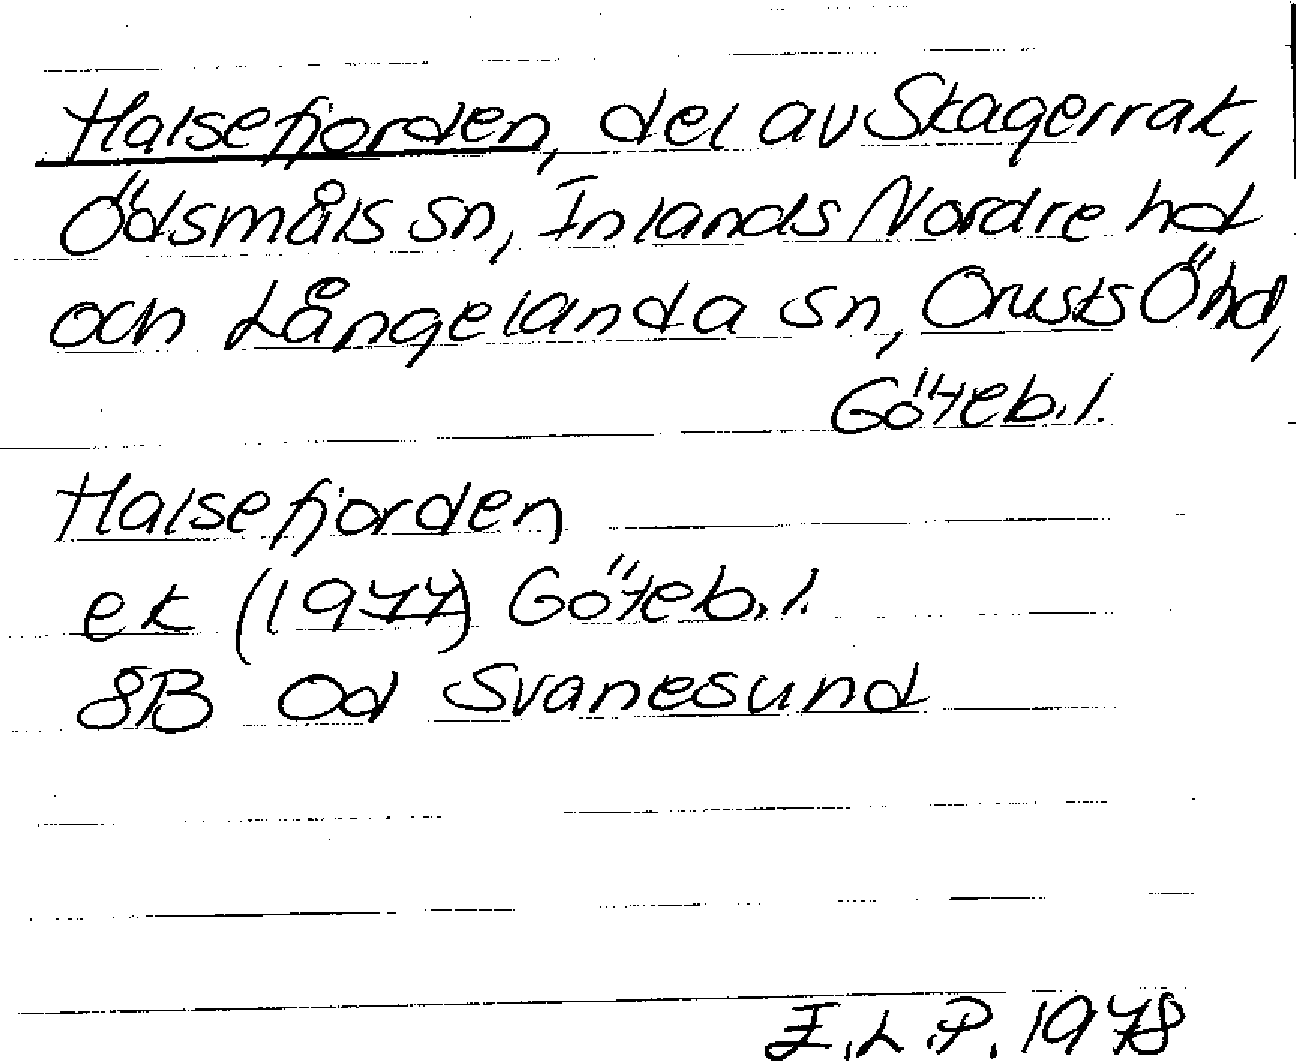 Halsefjorden, del av Skagerrak,
Ödsmåls sn, Inlands Nordre hd
och Långelanda sn, Orusts Ö hd,
Göteb. l.
Halsefjorden
ek (1977) Göteb. l.
8B 0d Svanesund
E.L.P. 1978